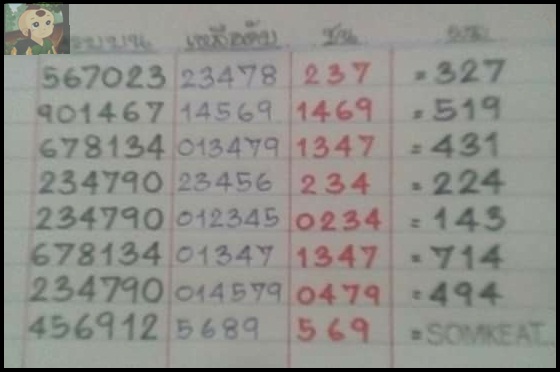 บน เหลือดับ ชน
567023 23478 237 =327
901467 14569 1469 =519
678134 013479 1347 =431
234790 23456 234 =224
234790 012345 0234 =143
678134 01347 1347 =714
234790 014579 0479 =494
456912 5689 569 =SOMKEAT...